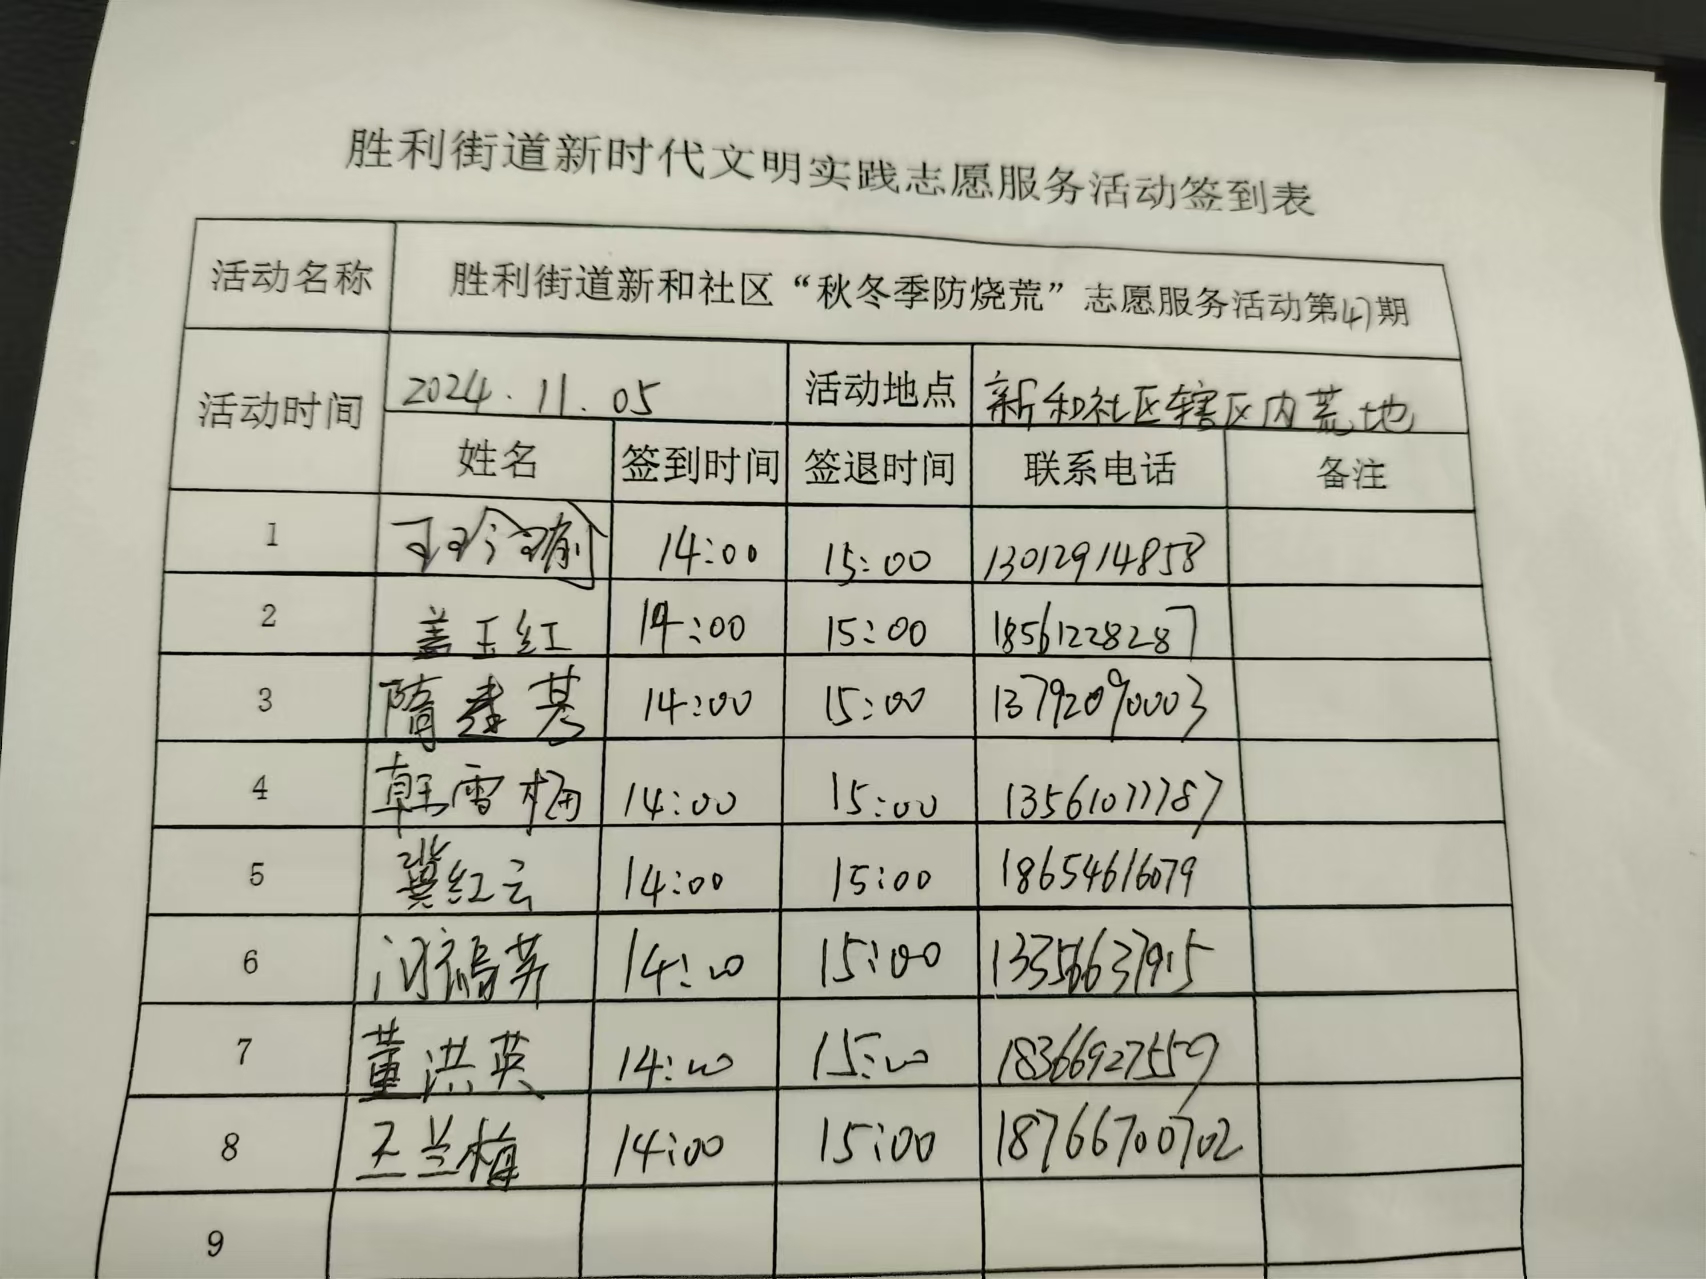 胜利街道新时代文明实践志愿服务活动签到表
活动名称 胜利街道新和社区“秋冬季防烧荒”志愿服务活动第47期
活动时间 2024.11.05 活动地点 新和社区辖区内荒地
姓名 签到时间 签退时间 联系电话 备注
1 14:00 15:00 13012914858
2 盖玉红 14:00 15:00 18561228287
3 隋建芬 14:00 15:00 13792090003
4 韩雪梅 14:00 15:00 13561077787
5 冀红云 14:00 15:00 18654616079
6 14:00 15:00 13356637915
7 董洪英 14:00 15:00 18366927559
8 王兰梅 14:00 15:00 18766700702
9